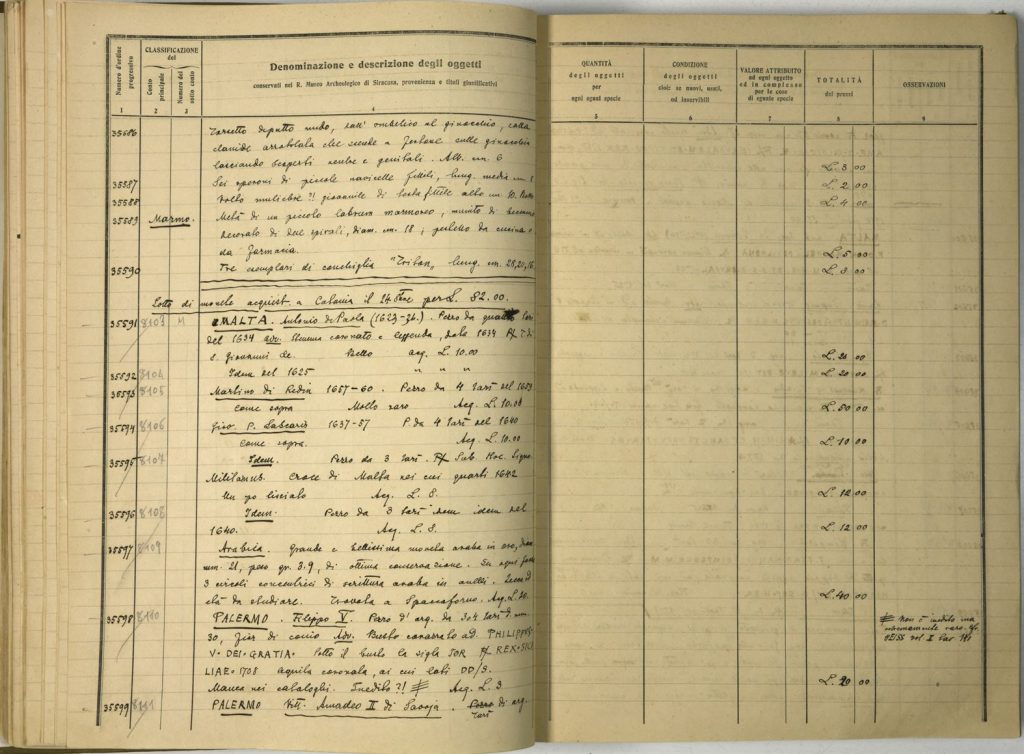 Numero d'ordine progressivo
CLASSIFICAZIONE del
Conto principale
Numero del sotto conto
Denominazione e descrizione degli oggetti
conservati nel R. Museo Archeologico di Siracusa, provenienza e titoli giustificativi
1 2 3 4
35586 Torsetto di putto nudo, dall' ombelico al ginocchio, colla
clamide arrotolata che scende a festone sulle ginocchia
lasciando scoperti ventre e genitali. Alt. cm. 6
35587 Sei speroni di piccole navicelle fittili, lung. media cm.
35588 Volto muliebre ?! giovanile di testa fittile alto cm 10.
35589 Marmo. Metà di un piccolo labrum marmoreo, munito di
decorato di due spirali, diam. cm. 18; pestello da cucina o
da farmacia.
35590 Tre esemplari di conchiglia "Triton", lung. cm. 28, 20, 16
Lotto di monete acquist. a Catania il 24 per L. 82.00.
35591 8103 M MALTA. Antonio de Paola (1623-36.). Pezzo da quattro tarì
del 1634 adv. Stemma coronato e leggenda, data 1634 T. di
S. Giovanni dec. Bello acq. L. 10.00
35592 8104 Idem del 1625 " " "
35593 8105 Martino di Redin 1657-60. Pezzo da 4 Tarì del 1659
come sopra Molto raro Acq. L. 10.00
35594 8106 Giov. P. Lascaris 1637-57 P. da 4 Tarì del 1640
come sopra. Acq. L. 10.00
35595 8107 Idem. Pezzo da 3 tarì. Sub Hoc. Signo
Militamus. Croce di Malta nei cui quarti 1642
Un po lisciato Acq. L. 8.
35596 8108 Idem. Pezzo da 3 tarì idem idem del
1640. Acq. L. 8.
35597 8109 Arabica. Grande e bellissima moneta araba in oro, diam
mm. 21, peso gr. 3.9, di ottima conservazione. In ogni faccia
3 circoli concentrici di scrittura araba in anelli.
età da studiare. Trovata a Spaccaforno. Acq. L. 20.
35598 8110 PALERMO. Filippo V. Pezzo d'arg. da Tarì
30, fior di conio Adv. Busto corazzato a d. PHILIPPVS
V · DEI · GRATIA · Sotto il busto la sigla REX · SICI
LIAE · 1708 aquila coronata, ai cui lati DD/S.
Manca nei cataloghi. Inedito ?! Acq. L. 3
35599 8111 PALERMO Vitt. Amadeo II di Savoja. Pezzo di arg.
Tarì
QUANTITÀ degli oggetti per ogni egual specie
CONDIZIONE degli oggetti cioè: se nuovi, usati, od inservibili
VALORE ATTRIBUITO ad ogni oggetto od in complesso per le cose di eguale specie
TOTALITÀ dei prezzi
OSSERVAZIONI
5 6 7 8 9
L. 3 00
L. 2 00
L. 4 00
L. 5 00
L. 3 00
L. 20 00
L. 20 00
L. 50 00
L. 10 00
L. 12 00
L. 12 00
L. 40 00
Non è inedito ma
estremamente raro. Cfr.
vol. II
L. 20 00